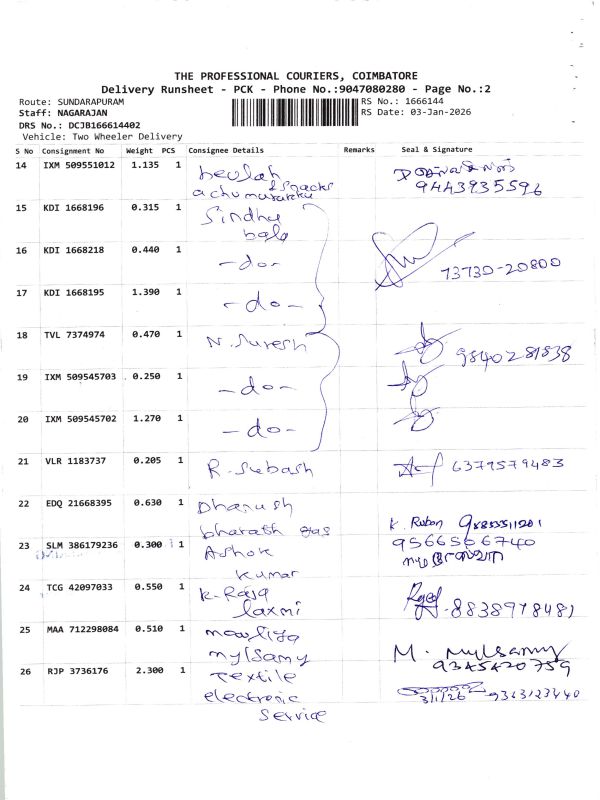 THE PROFESSIONAL COURIERS, COIMBATORE
Delivery Runsheet - PCK - Phone No.:9047080280 - Page No.:2
Route: SUNDARAPURAM RS No.: 1666144
Staff: NAGARAJAN RS Date: 03-Jan-2026
DRS No.: DCJB166614402
Vehicle: Two Wheeler Delivery
S No Consignment No Weight PCS Consignee Details Remarks Seal & Signature
14 IXM 509551012 1.135 1 beulah & snacks 9443935596
15 KDI 1668196 0.315 1 Sindhu
bala
16 KDI 1668218 0.440 1 -do- 73730-20800
17 KDI 1668195 1.390 1 -do-
18 TVL 7374974 0.470 1 N. Suresh 9840281838
19 IXM 509545703 0.250 1 -do-
20 IXM 509545702 1.270 1 -do-
21 VLR 1183737 0.205 1 R. Subash 6379579483
22 EDQ 21668395 0.630 1 Dhanush
bharath gas K. Ruban
23 SLM 386179236 0.300 1 Ashok 9566506740
Kumar
24 TCG 42097033 0.550 1 K. Raja
laxmi 8838978481
25 MAA 712298084 0.510 1 mowliya
mylsamy M. Mylsamy
9345420759
26 RJP 3736176 2.300 1 Textile
electronic 3/1/26 9363123440
Service